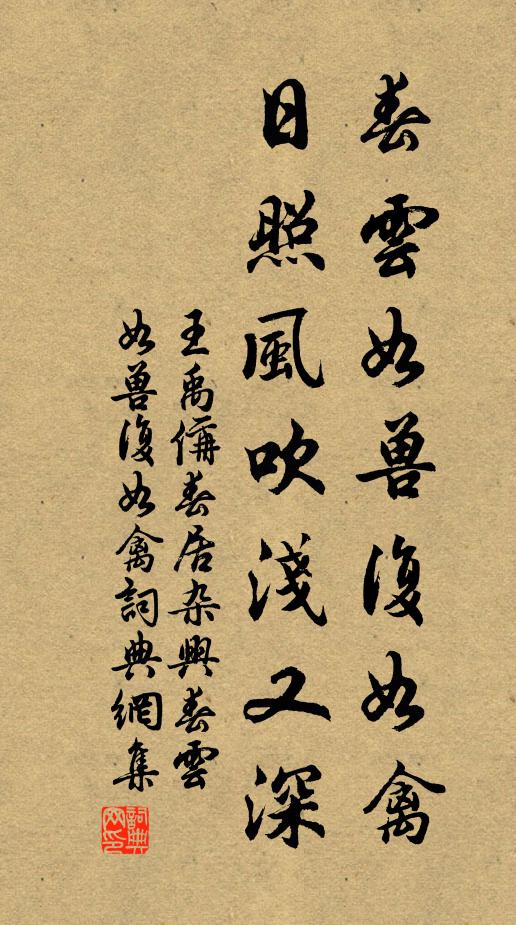 春雲如兽復如禽
日照風吹淺又深
王禹偁春居杂興春雲
如兽復如禽詞典網集
詞典
网印